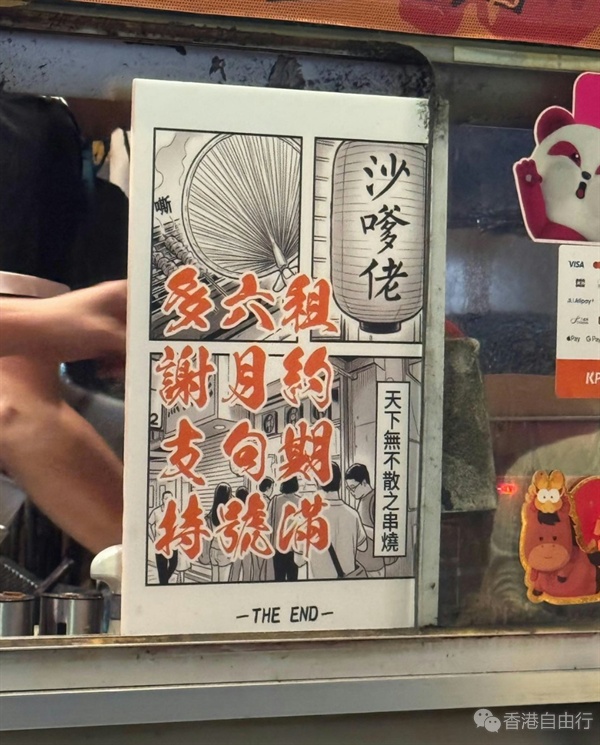 沙嗲佬
租約期滿
六月句號
多謝支持
天下無不散之串燒
—THE END—
VISA
Alipay+
Pay
G Pay
KP
香港自由行